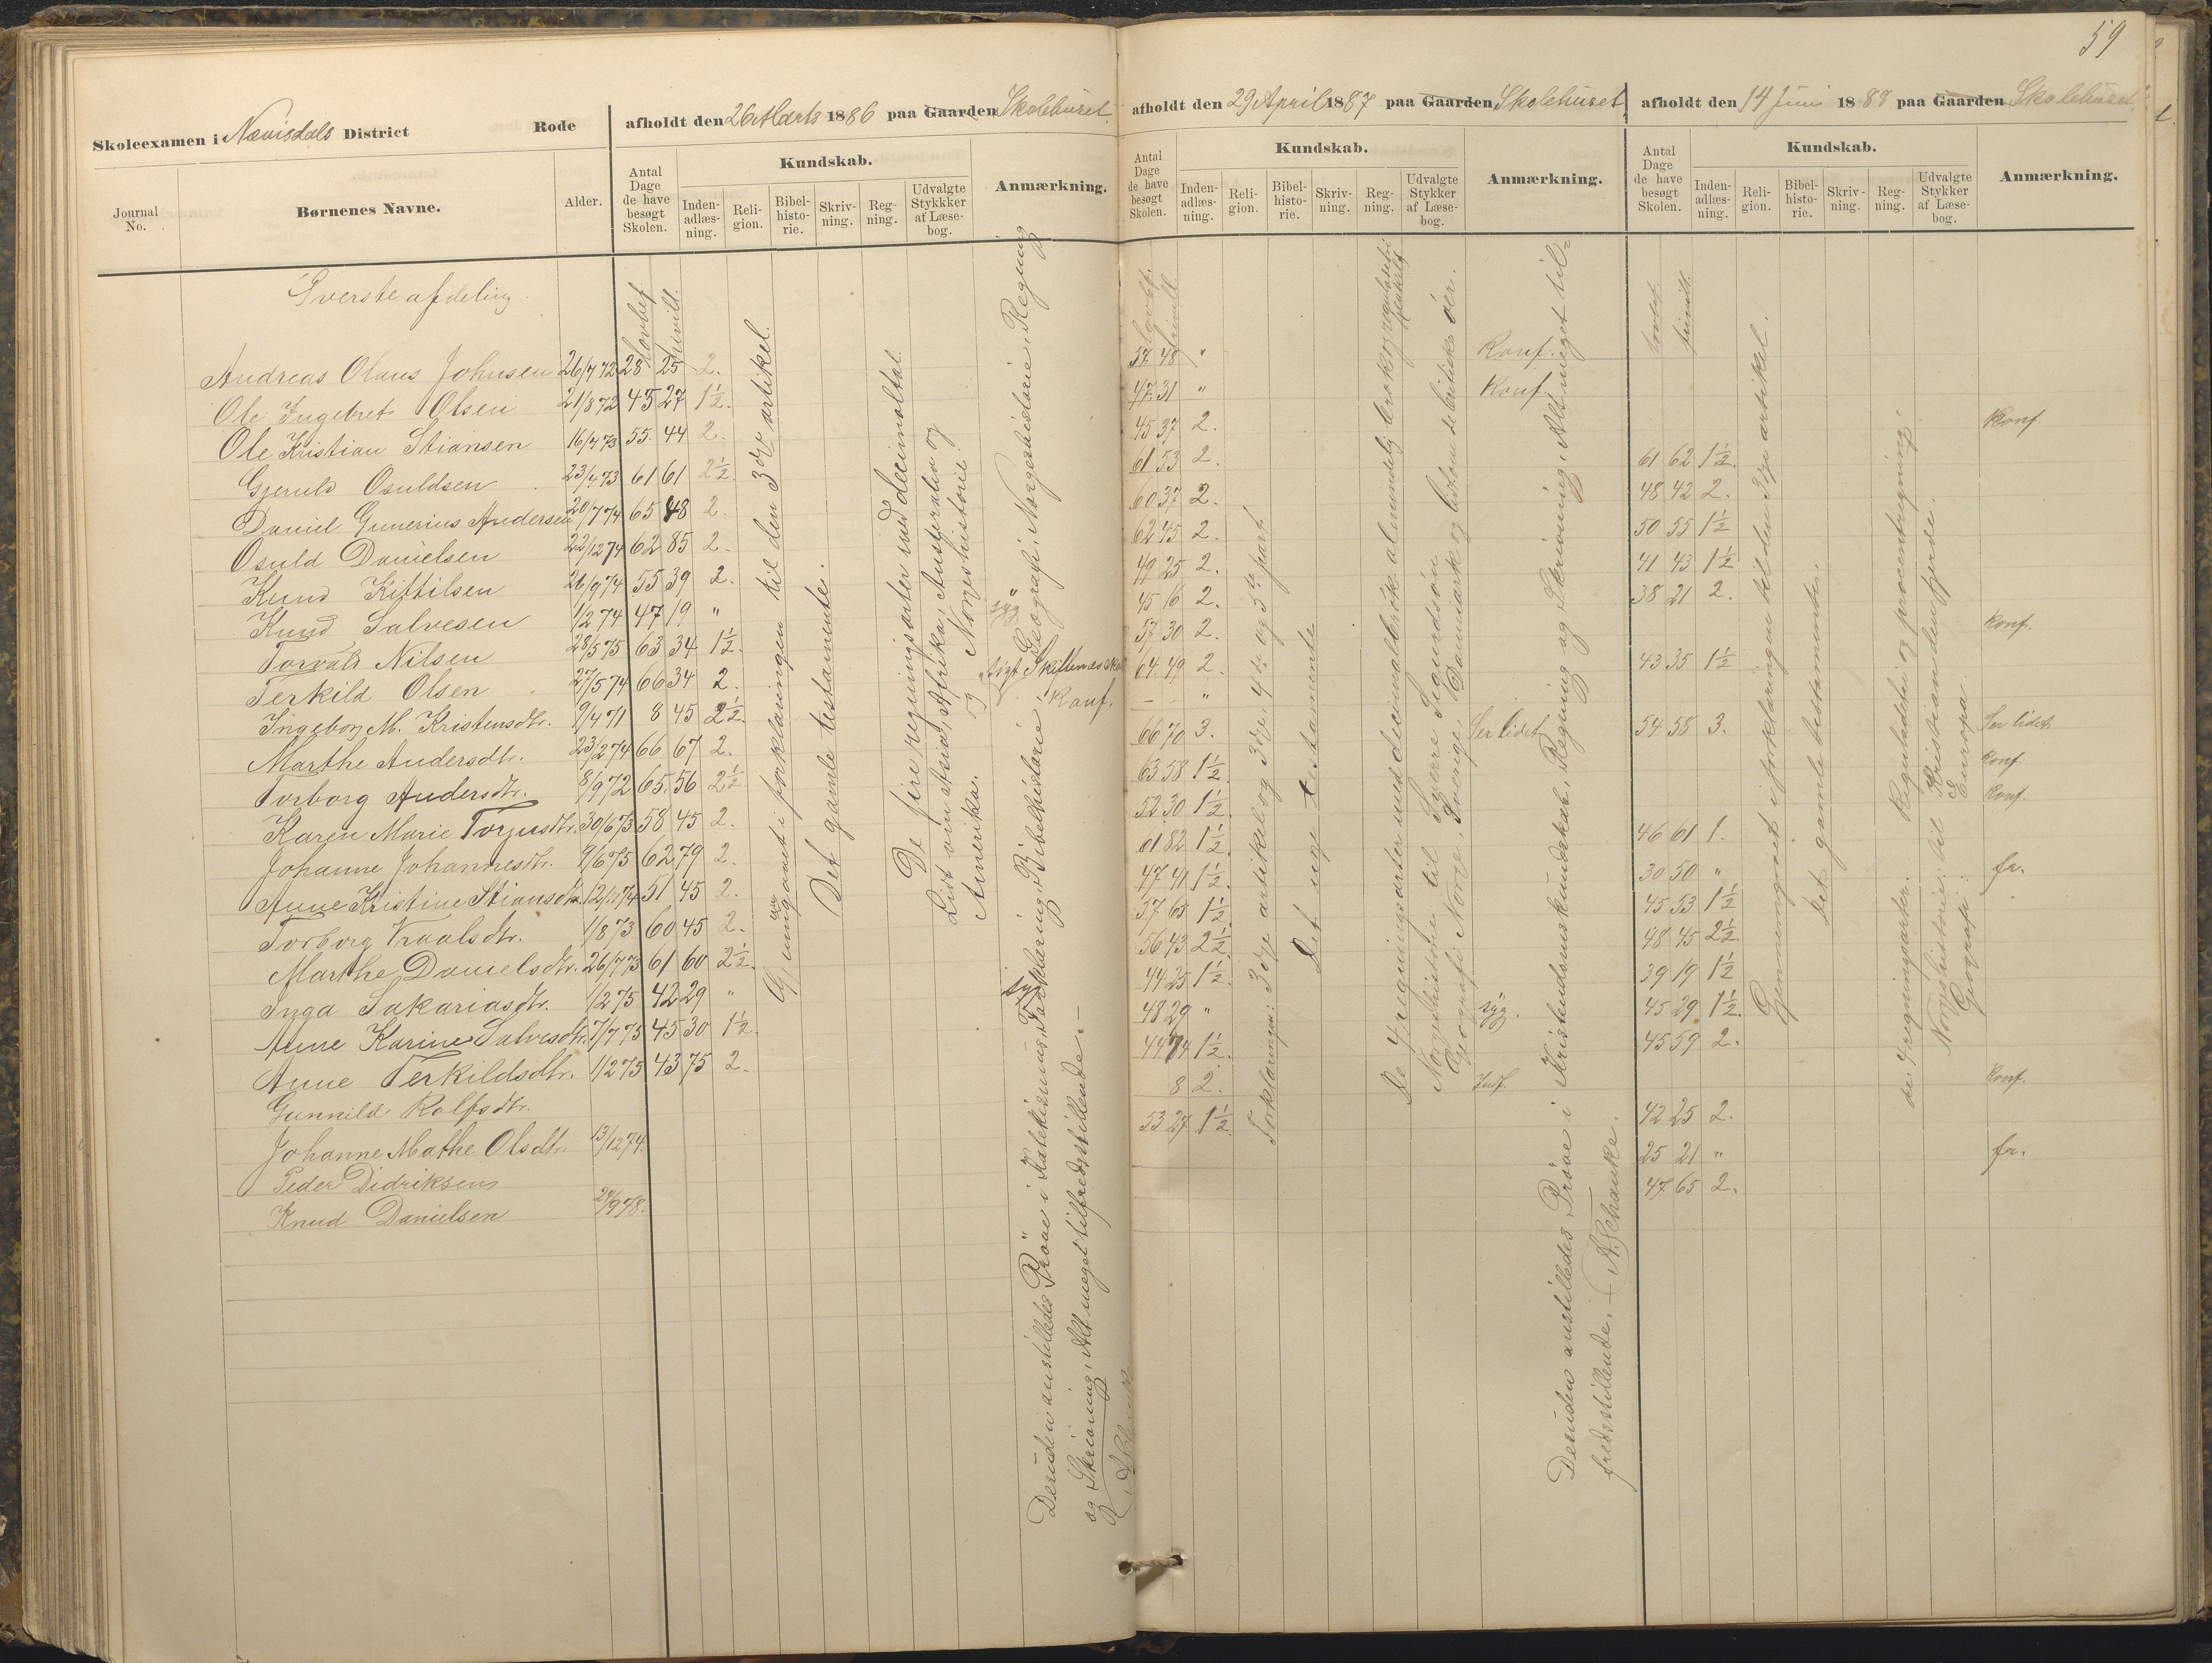 59
Skoleexamen i Nævisdals District Rode
afholdt den 26 Marts 1886 paa Gaarden Skolehuset
afholdt den 29 April 1887 paa Gaarden Skolehuset
afholdt den 14 Juni 1888 paa Gaarden Skolehuset
Journal No. Børnenes Navne. Alder. Antal Dage de have besøgt Skolen. Kundskab. Inden-adlæs-ning. Reli-gion. Bibel-histo-rie. Skriv-ning. Reg-ning. Udvalgte Stykkker af Læse-bog. Anmærkning.
Antal Dage de have besøgt Skolen. Kundskab. Inden-adlæs-ning. Reli-gion. Bibel-histo-rie. Skriv-ning. Reg-ning. Udvalgte Stykker af Læse-bog. Anmærkning.
Antal Dage de have besøgt Skolen. Kundskab. Inden-adlæs-ning. Reli-gion. Bibel-histo-rie. Skriv-ning. Reg-ning. Udvalgte Stykker af Læse-bog. Anmærkning.
Øverste afdeling.
Andreas Olaus Johnsen 26/7 72 28 25 2. 57 48 " Konf.
Ole Ingebret Olsen 21/8 72 45 27 1½. 47 31 " Konf.
Ole Kristian Stiansen 16/4 73 55. 44 2. 45 37 2. Konf.
Gjeruld Osuldsen 23/4 73 61 61 2½. 61 53 2. 61 62 1½.
Daniel Gunerius Andersen 20/7 74 65 48 2. 60 37 2. 48 42 2.
Osuld Danielsen 22/12 74 62 85 2. 62 45 2. 50 55 1½
Knud Kittilsen 26/9 74 55 39 2. 49 25 2. 41 43 1½
Knud Salvesen 1/2 74 47 19 " syg 45 16 2. 38 21 2.
Torvald Nilsen 28/5 75 63 34 1½. 57 30 2. Konf.
Terkild Olsen 27/5 74 66 34 2. 64 49 2. 43 35 1½
Ingeborg M. Kristensdtr. 9/4 71 8 45 2½. Konf. — "
Marthe Andersdtr. 23/2 74 66 67 2. 66 70 3. Ser lidet 54 58 3. Ser lidet
Torborg Andersdtr. 8/9 72 65. 56 2½ 63 58 1½. Konf
Karen Marie Torjusdtr. 30/6 73 58 45 2. 52 30 1½. Konf.
Johanne Johannesdtr. 9/6 75 62 79 2. 61 82 1½. 46 61 1.
Anne Kristine Stiansdtr. 12/11 74 51 45 2. 47 41 1½. 30 50 " fr.
Torborg Vraalsdtr. 1/8 73 60 45 2. 57 65 1½. 45 53 1½
Marthe Danielsdtr. 26/7 73 61 60 2½. 56 43 2½. 48 45 2½.
Inga Sakariasdtr. 1/2 75 42 29 " syg 44 25 1½. 39 19 1½
Anne Karine Salvesdtr. 7/7 75 45 30 1½. 48 29 " syg. 45 29 1½.
Anne Terkildsdtr. 1/2 75 43 75 2. 44 74 1½. 45 59 2.
Gunnild Rolfsdtr. 8 2. Indf. Konf.
Johanne Mathe Olsdtr. 13/12 74. 53 27 1½ 42 25 2.
Peder Didriksen 25 21 " fr.
Knud Danielsen 24/9 78. 47 65 2.
Gjennemgaaet i forklaringen til den 3die artikel.
Det gamle testamente.
De fire regningsarter med decimaltal.
Lidt om Asia, Afrika, Australia og Amerika.
Norgeshistorie.
Desuden anstilledes Prøve i Katekismus, Forklaring, Bibelhistorie, Geografi, Norgeshistorie, Regning
og Skrivning, Alt meget tilfredsstillende. —
Forklaringen: 3die artikel og 3die, 4de og 5te part.
Det nye testamente
De 4 regningsarter med decimalbrøk almindelig brøk og regulaetri
Norgeshistorie til Sverre Sigurdsøn
Geografi: Norge, Sverige, Danmark og
Desuden anstilledes Prøve i Kristendomskundskab, Regning og Skrivning, Alt meget til=
fredsstillende. A. Schanke.
Gjennemgaaet i forklaringen til den 3die artikel.
Det gamle testamente.
de 4 regningsarter. Reguladetri og procentregning.
Norgeshistorie: til Kristian den fjerde.
Geografi: Europa.